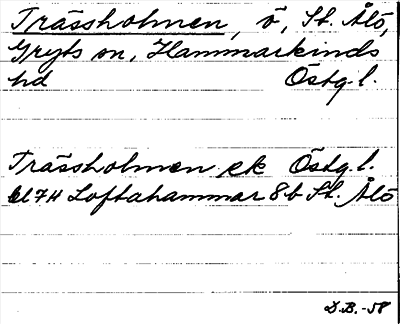 Trässholmen, ö, St. Ålö,
Gryts sn, Hammarkinds
hd Östg.l.
Trässholmen ek Östg.l.
bl 74 Loftahammar 8b St. Ålö
D.B.-58